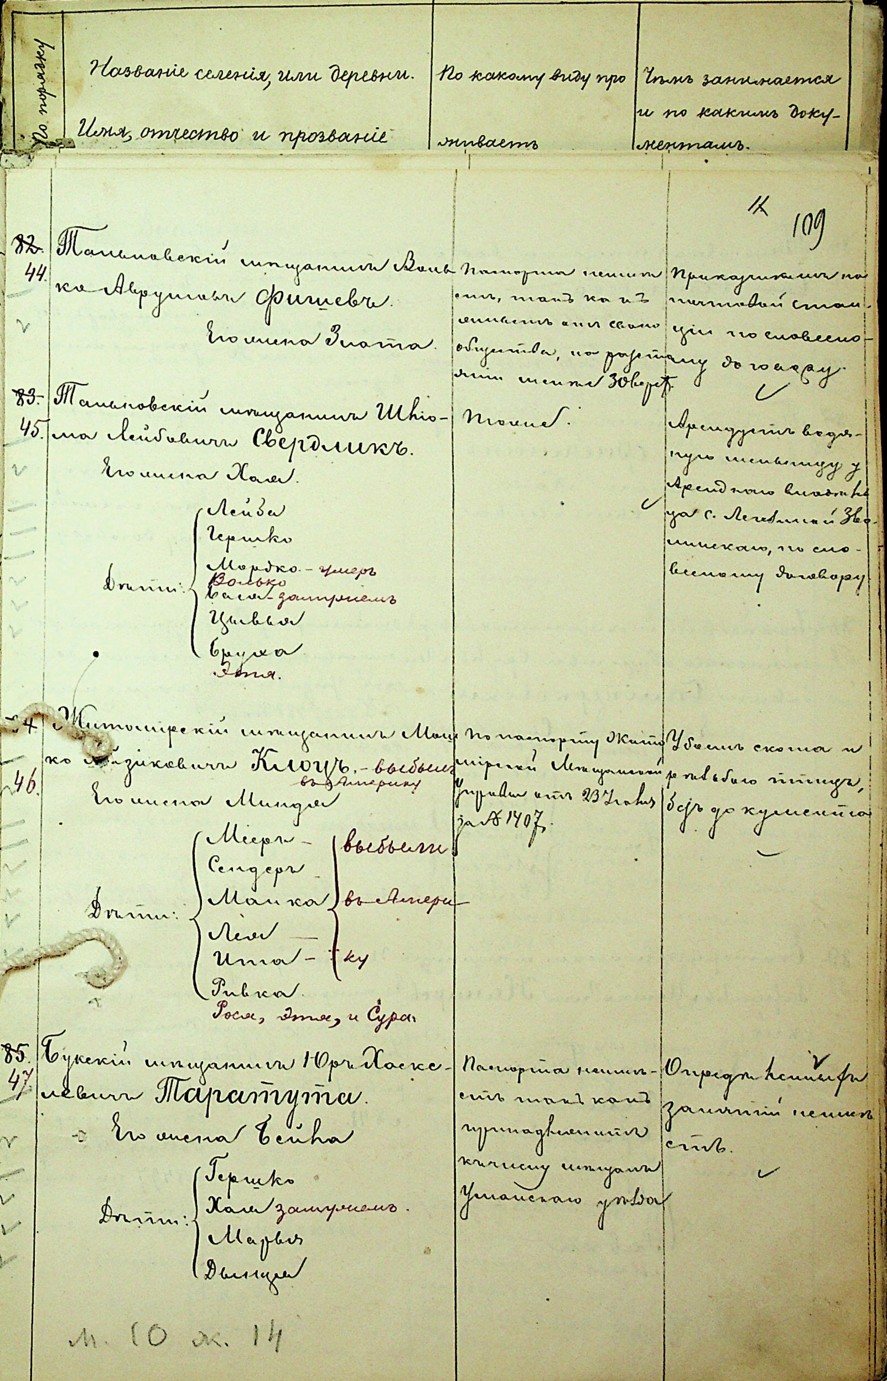 По порядку
Названіе селенія, или деревни.
Имя, отчество и прозваніе
По какому виду про
живаетъ
Чѣмъ занимается
и по какимъ доку-
ментамъ.
11
109
82.
44.
Тальновскій мѣщанинъ Воль-
ко Аврумовъ Фишевъ.
Его жена Злота.
Паспорта неимѣ
етъ, такъ какъ
общества, на разсто
яніи менѣе 30 верст.
Прикащикомъ на
почтовой стан-
ціи по словесно-
му договору.
83.
45.
Тальновскій мѣщанинъ Шліо-
ма Лейбовичъ Свердликъ.
Его жена Хая.
Дѣти:
Лейба
Гершко
Мордко - умеръ
Волько
Бася - замужемъ
Цывья
Бруха
Этя.
Тоже.
Арендуетъ водя-
ную мельницу у
с. Легезиной Зво-
линскаго, по сло-
весному договору
84
46.
Житомірскій мѣщанинъ Мош
ко Айзиковичъ Клоцъ. - выбылъ
въ Америку
Его жена Миндля
Дѣти:
Мееръ -
Сендеръ
Малка
Лея -
Ита -
Ривка.
Рося, Этя, и Сура.
выбыли
въ Амери-
ку
По паспорту Жито
мірской Мѣщанской
Управы отъ 23 Іюля
за № 1407.
Убоемъ скота и
птицъ,
безъ документа
85.
47.
Букскій мѣщанинъ Юръ Хаске-
левичъ Таратута.
Его жена Бейла
Дѣти:
Гершко
Хая замужемъ.
Марья
Двойра
Паспорта неимѣ-
етъ такъ какъ
принадлежитъ
къ числу мѣщанъ
Уманскаго уѣзда
Опредѣленныхъ
занятій неимѣ
етъ.
м. 10 ж. 14